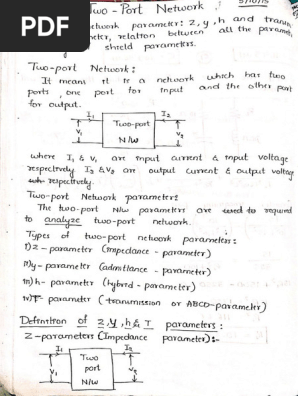 PDF
Two-Port Network
5/10/15
network parameter: Z, y, h and transm
meter, relation between all the param
shield parameters.
Two-port Network:
It means it is a network which has two
ports, one port for input and the other port
for output.
I₁ I₂
V₁ Two-port V₂
N/W
where I₁ & V₁ are input current & input voltage
respectively I₂ & V₂ are output current & output voltage
respectively.
Two-port Network parameters:
The two-port N/w parameters are used to required
to analyze two-port network.
Types of two-port network parameters:
i) z - parameter (impedance - parameter)
ii) y - parameter (admittance - parameter)
iii) h - parameter (hybrid - parameter)
iv) T - parameter (transmission or ABCD-parameter)
Definition of z, y, h & T parameters:
Z-parameters (Impedance parameter):-
I₁ I₂
V₁ Two V₂
port
N/W